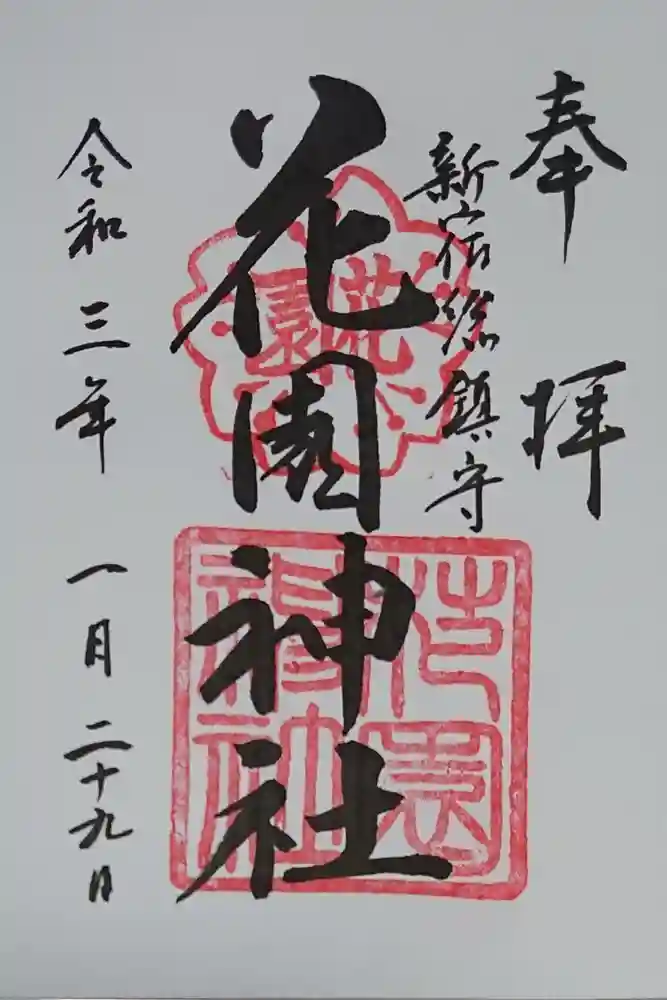 奉拝
新宿総鎮守
花園神社
花園
花園神社
令和三年一月二十九日